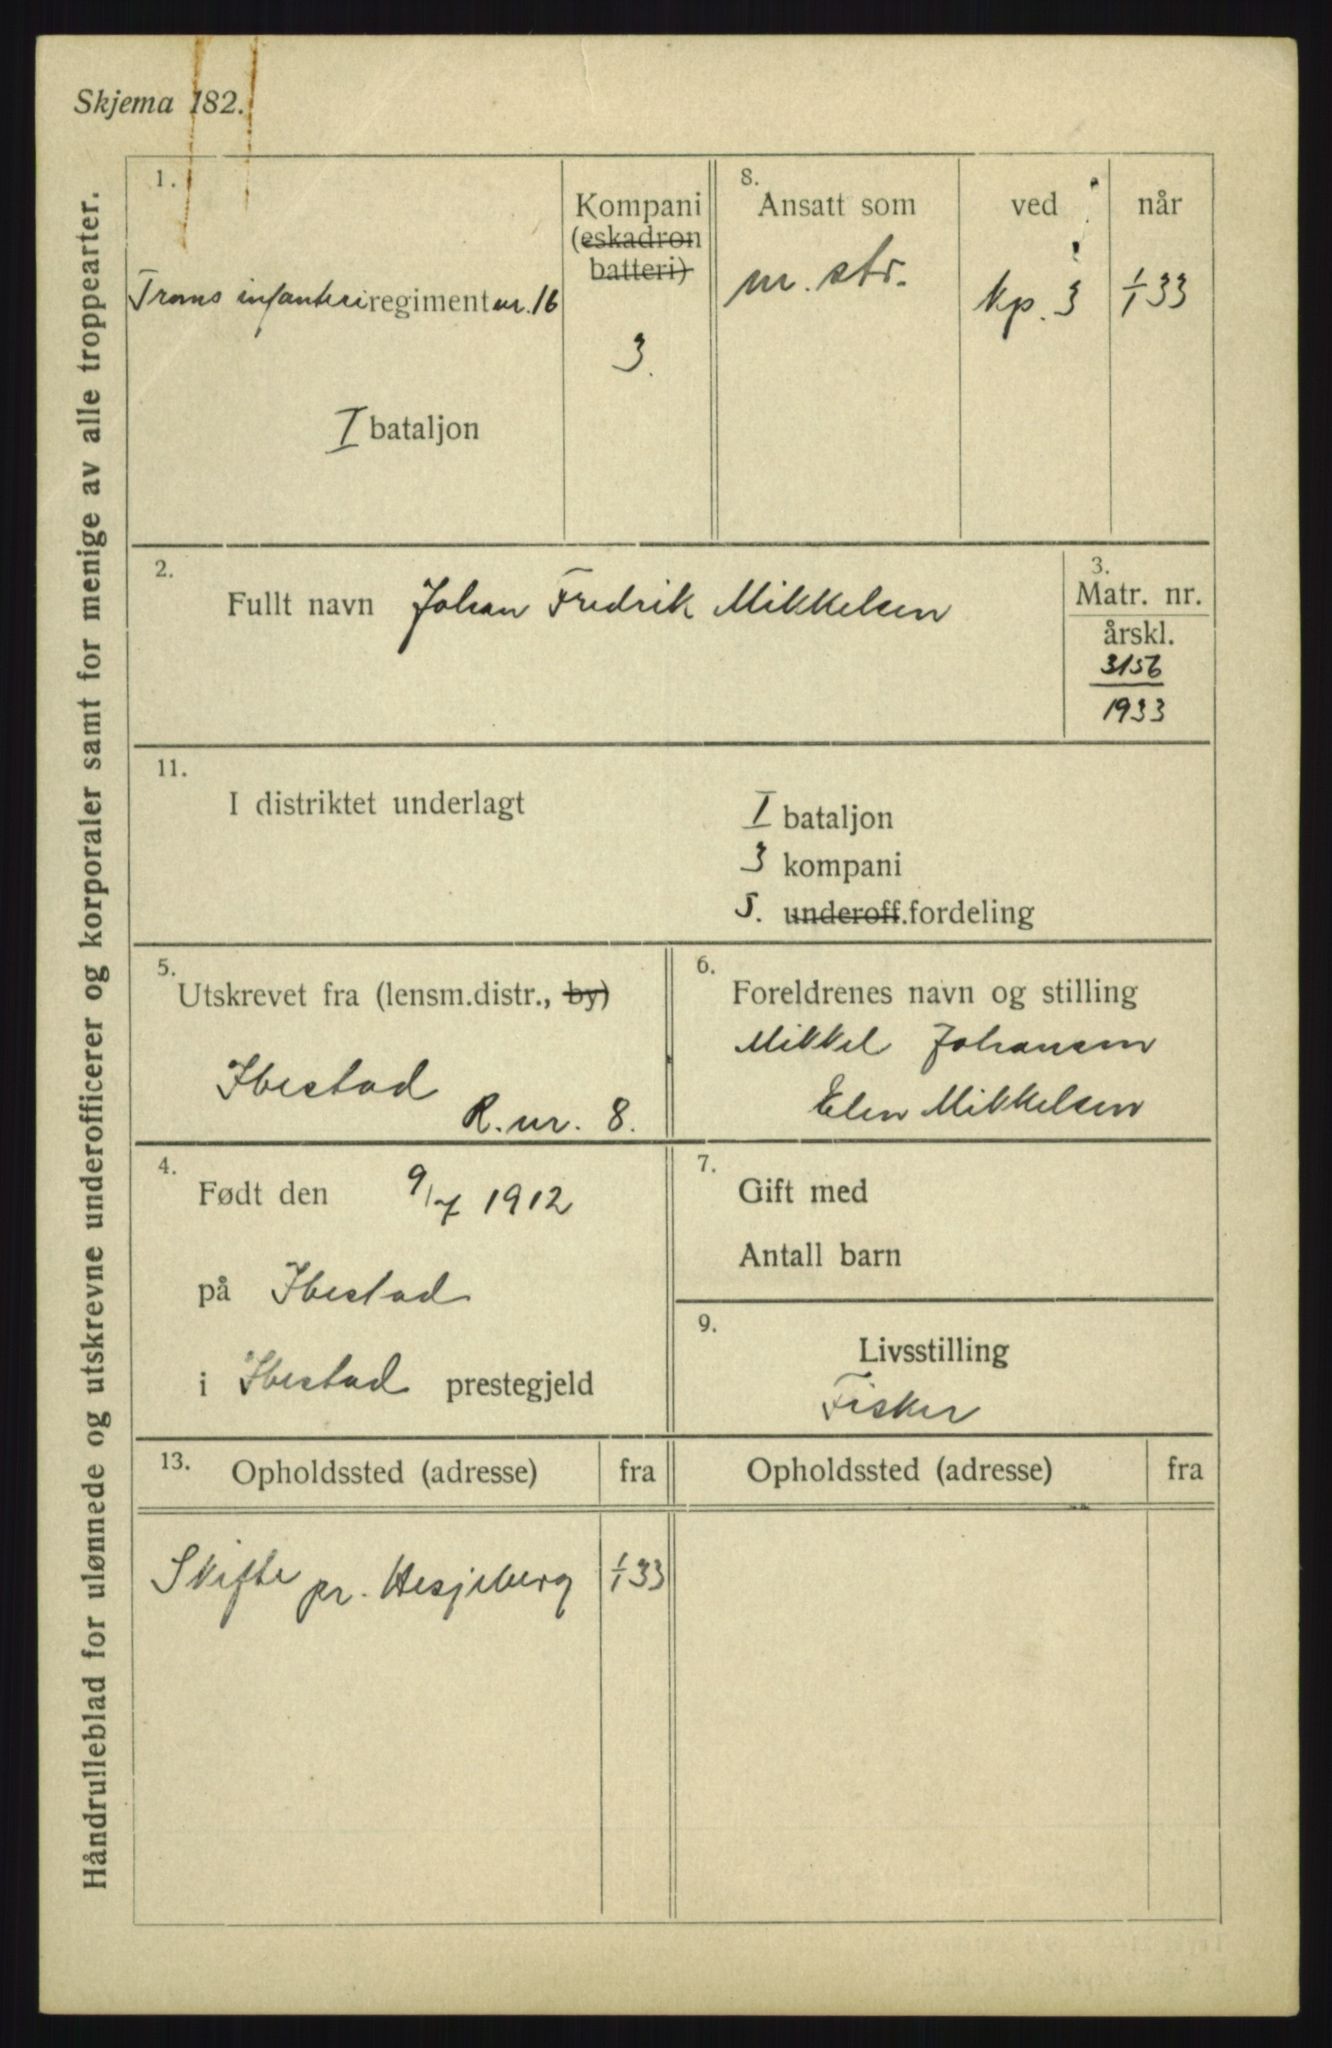 Skjema 182.
Håndrulleblad for ulønnede og utskrevne underofficerer og korporaler samt for menige av alle troppearter.
1.
Troms infanteri regiment nr. 16
I bataljon
Kompani
(eskadron
batteri)
3.
8.
Ansatt som
ved
når
m. str.
kp. 3
1/1 33
2.
Fullt navn Johan Fredrik Mikkelsen
3.
Matr. nr.
årskl.
3156
1933
11.
I distriktet underlagt
I bataljon
3 kompani
5. underoff.fordeling
5.
Utskrevet fra (lensm.distr., by)
Ibestad
R. nr. 8.
6.
Foreldrenes navn og stilling
Mikkel Johansen
Elen Mikkelsen
4.
Født den 9/7 1912
på Ibestad
i Ibestad prestegjeld
7.
Gift med
Antall barn
9.
Livsstilling
Fisker
13.
Opholdssted (adresse)
fra
Opholdssted (adresse)
fra
Skifte pr. Hesjeberg
1/1 33